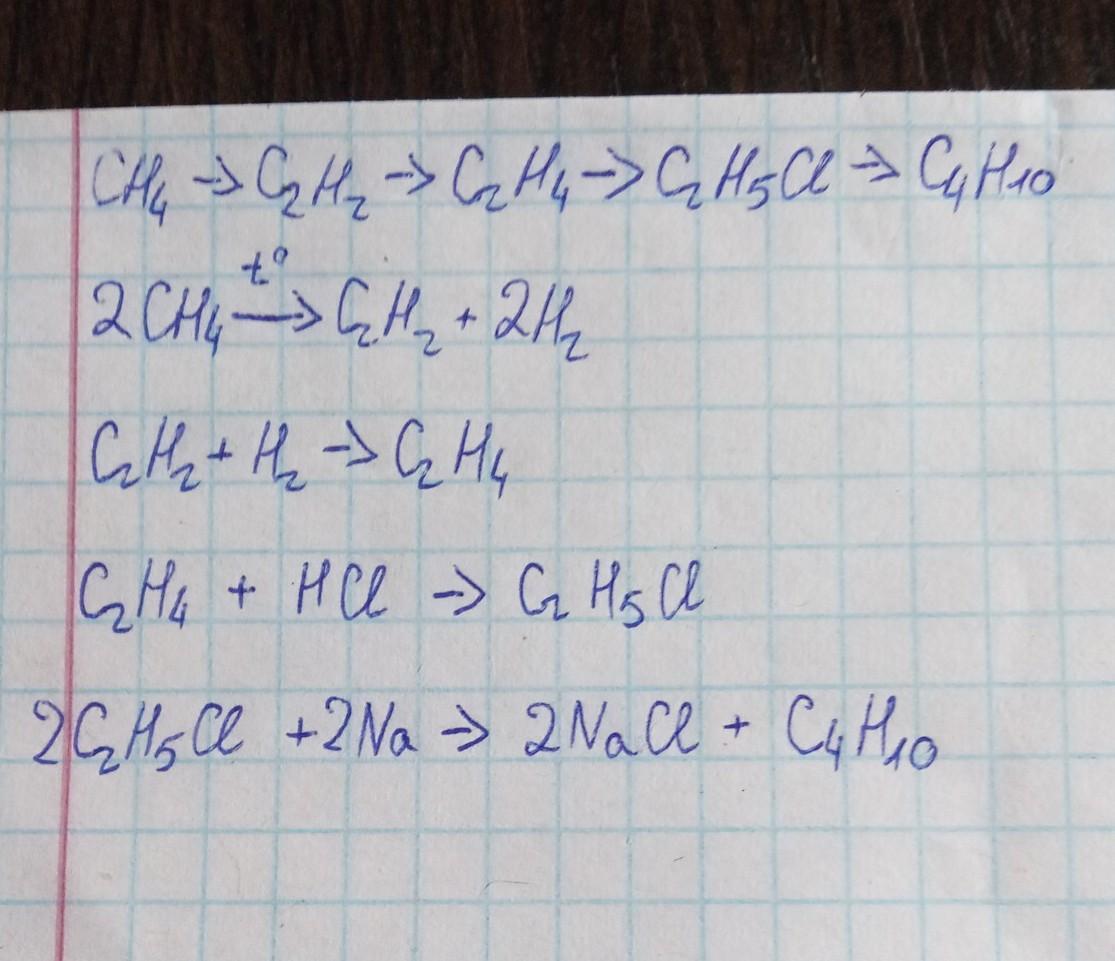 CH₄ → C₂H₂ → C₂H₄ → C₂H₅Cl → C₄H₁₀
2CH₄ —t°→ C₂H₂ + 2H₂
C₂H₂ + H₂ → C₂H₄
C₂H₄ + HCl → C₂H₅Cl
2C₂H₅Cl + 2Na → 2NaCl + C₄H₁₀